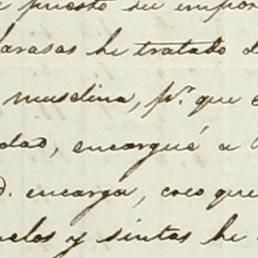 puesto su impor
arasas he tratado d
muselina, pr. que e
dad, encargué a
d. encarga, creo que
uelos y sintas he